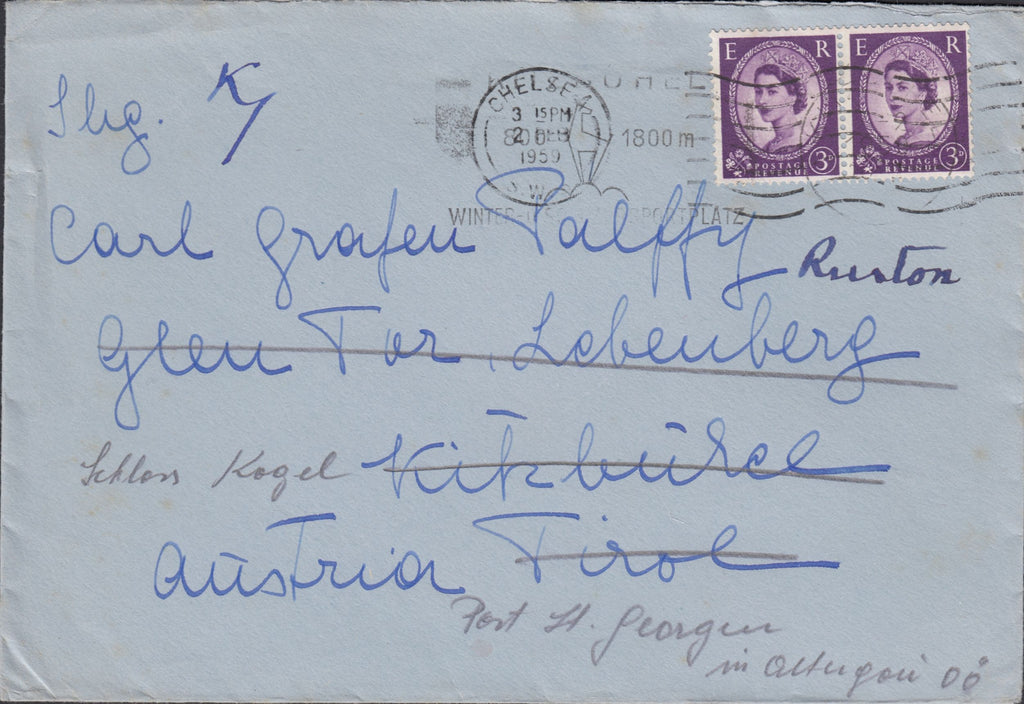 E R E R
CHELSEA
3 15PM
2 FEB
1959
S.W.
800
1800 m
3D POSTAGE REVENUE 3D POSTAGE REVENUE
WINTER- SPORTPLATZ
K
Carl Grafen Palffy
Ruston
Glen Tor, Lebenberg
Schloss Kogel Kitzbühel
Austria Tirol
Post St. Georgen
in Attergau OÖ